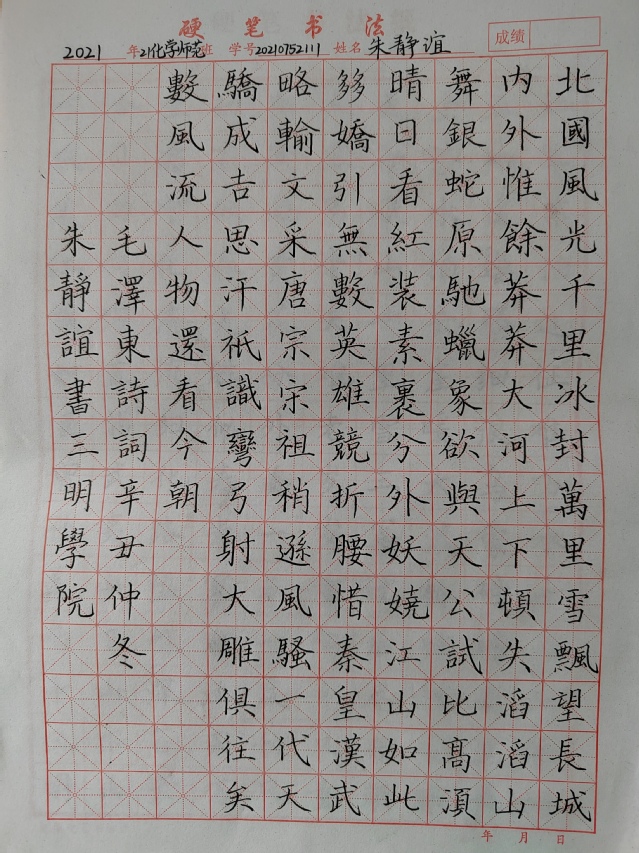 硬笔书法
2021 年 21化学师范 班 学号 20210752111 姓名 朱静谊 成绩
北國風光千里冰封萬里雪飄望長城
內外惟餘莽莽大河上下頓失滔滔山
舞銀蛇原馳蠟象欲與天公試比高湏
晴日看紅裝素裹兮外妖嬈江山如此
多嬌引無數英雄競折腰惜秦皇漢武
略輸文采唐宗宋祖稍遜風騷一代天
驕成吉思汗祇識彎弓射大雕俱往矣
數風流人物還看今朝
毛澤東詩詞辛丑仲冬
朱靜誼書三明學院
年 月 日